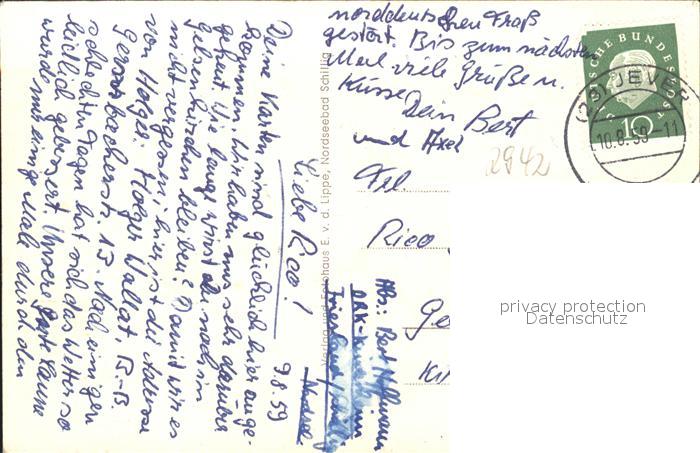 9.8.59
Liebe Rico!
Deine Karten sind glücklich hier ange-
kommen. Wir haben uns sehr darüber
gefreut. Wie lange wirst du noch in
Gelsenkirchen bleiben? Damit wir es
nicht vergessen; hier ist die Adresse
von Holger: Holger Wallat, B.-B.
13. Nach einigen
schlechten Tagen hat sich das Wetter so
leidlich gebessert. Unsere gute Laune
wurde nur einige Male durch den
norddeutschen Fraß
gestört. Bis zum nächsten
Mal viele Grüße u.
Küsse
Dein Bert
und Axel
2942
Frl
Rico
Ge
Ki
Abs: Bert Hoffmann
DRK-
Verlag und Fotohaus E. v. d. Lippe, Nordseebad Schillig
DEUTSCHE BUNDESPOST
10
(23) JEVER
10.8.59-11
privacy protection
Datenschutz